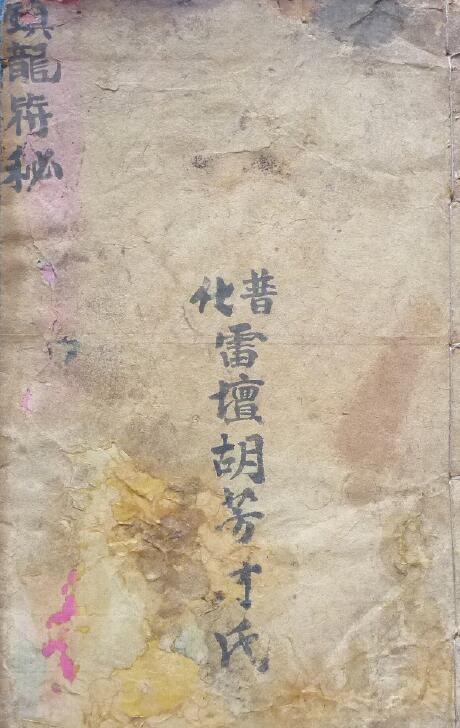 普化雷壇胡芳才氏
鎮龍符秘